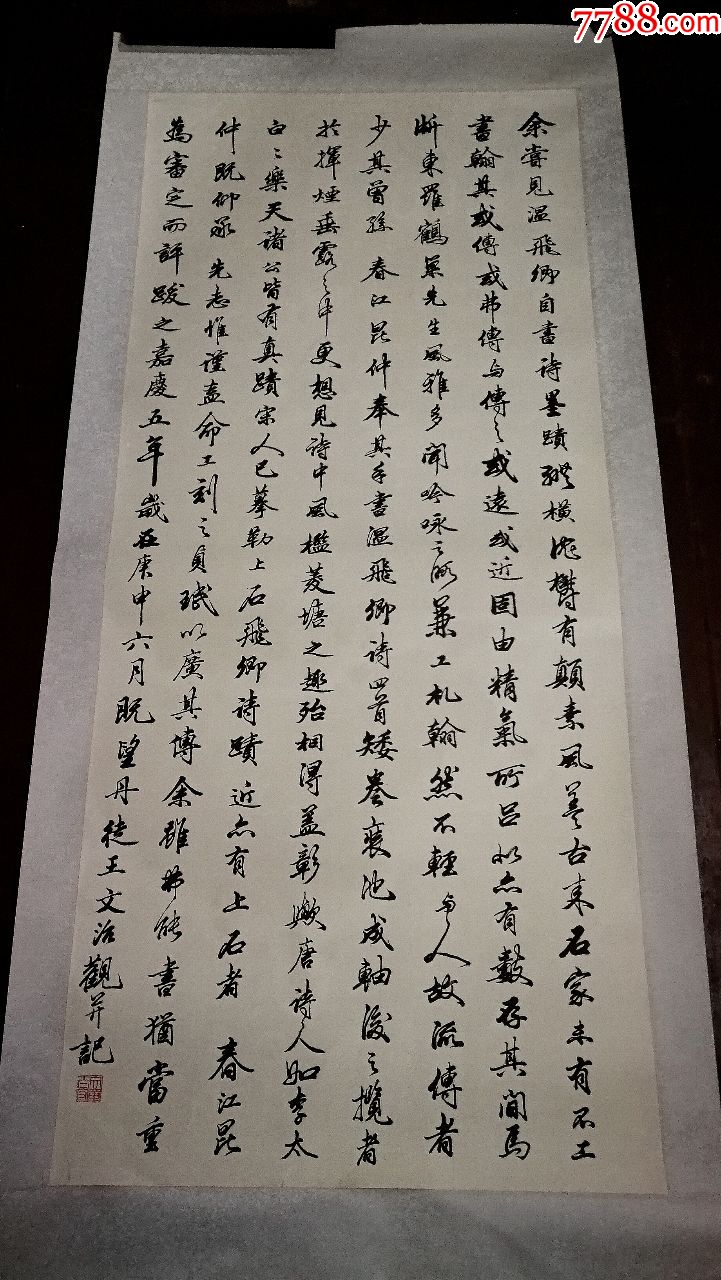 7788.com
余嘗見溫飛卿自書詩墨蹟縱橫沈鬱有顛素風善古來石家未有不工
書翰其或傳或弗傳與傳之或遠或近固由精氣所呂然亦有數存其間焉
浙東羅鶴巢先生風雅多聞吟咏之所兼工札翰然不輕與人故流傳者
少其曾孫春江昆仲奉其手書溫飛卿詩四首矮卷裝池成軸後之攬者
於揮煙垂露之中更想見詩中風檻菱塘之趣殆相得益彰歟唐詩人如李太
白白樂天諸公皆有真蹟宋人已摹勒上石飛卿詩蹟近亦有上石者春江昆
仲既仰承先志惟謹益命工刻之貞珉以廣其傳余雖弗能書猶當重
為審定而評跋之嘉慶五年歲在庚申六月既望丹徒王文治觀并記